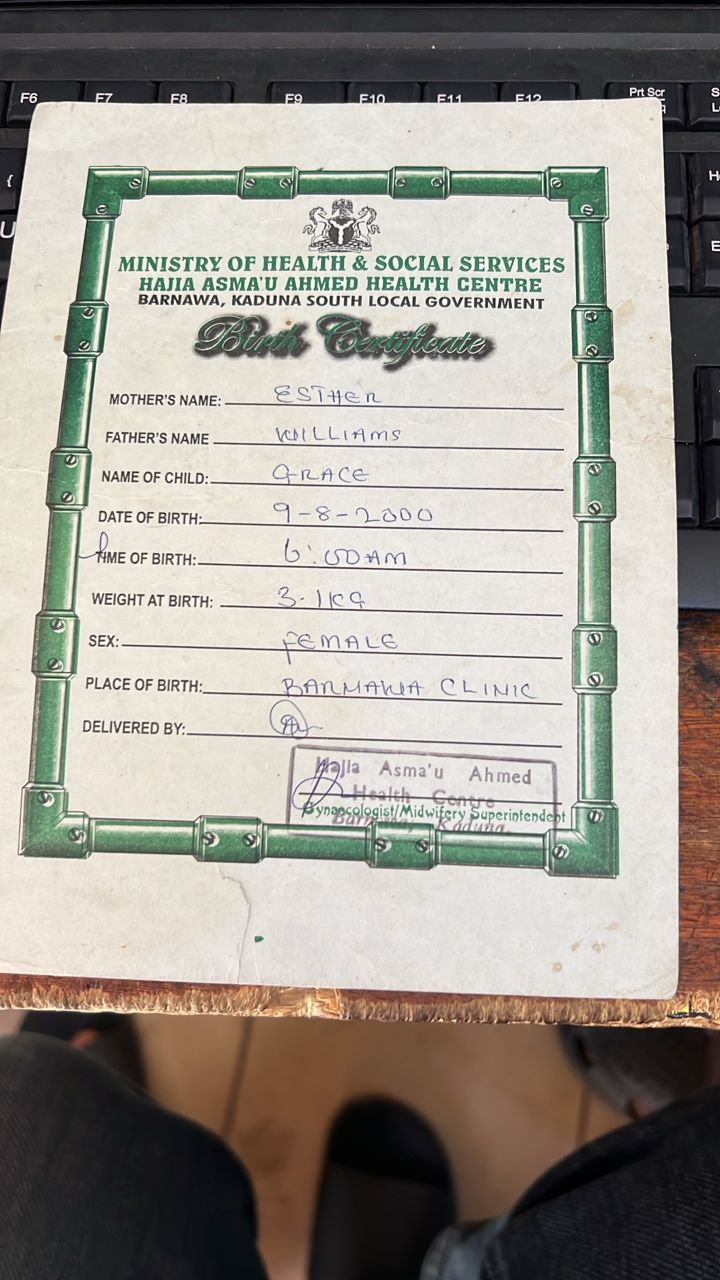 F6 F7 F8 F9 F10 F11 F12 Prt Scr
{
U
MINISTRY OF HEALTH & SOCIAL SERVICES
HAJIA ASMA'U AHMED HEALTH CENTRE
BARNAWA, KADUNA SOUTH LOCAL GOVERNMENT
Birth Certificate
MOTHER'S NAME: ESTHER
FATHER'S NAME WILLIAMS
NAME OF CHILD: GRACE
DATE OF BIRTH: 9-8-2000
TIME OF BIRTH: 6:00AM
WEIGHT AT BIRTH: 3.1KG
SEX: FEMALE
PLACE OF BIRTH: BARNAWA CLINIC
DELIVERED BY:
Hajia Asma'u Ahmed
Health Centre
Gynaecologist/Midwifery Superintendent
Barnawa, Kaduna.